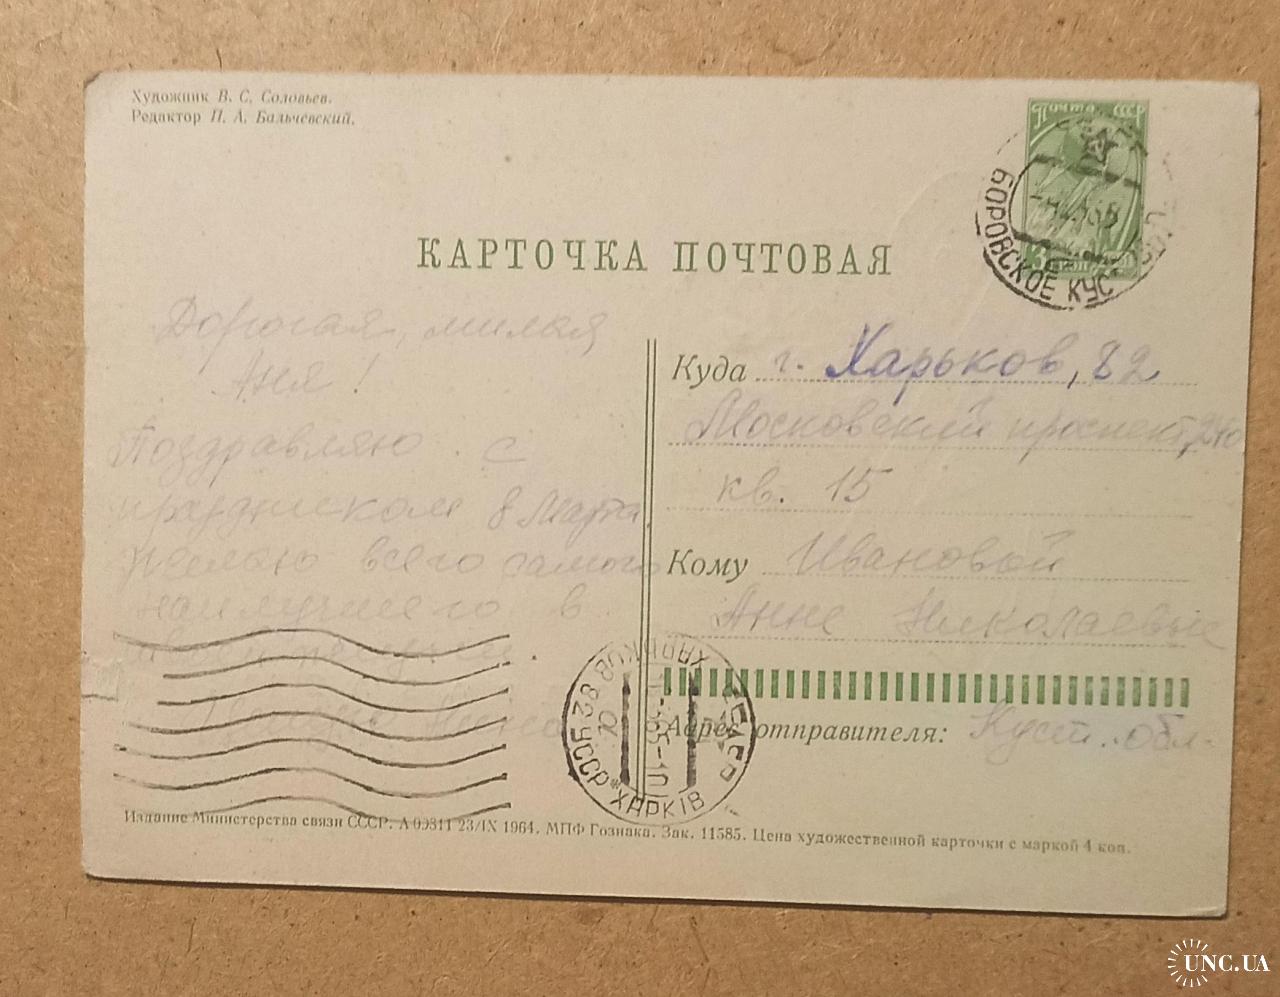 Художник В. С. Соловьев.
Редактор П. А. Бальчевский.
Почта СССР
БОРОВСКОЕ КУСТ
КАРТОЧКА ПОЧТОВАЯ
Дорогая, милая
Аня!
Поздравляю с
праздником 8 Марта
желаю всего самого
наилучшего в
Куда г. Харьков, 82
Московский проспект, 240
кв. 15
Кому Ивановой
Анне Николаевне
ХАРЬКОВ 82 УССР * ХАРКІВ
Адрес отправителя: Куст. обл.
Издание Министерства связи СССР. А 09311 23/IX 1964. МПФ Гознака. Зак. 11585. Цена художественной карточки с маркой 4 коп.
UNC.UA